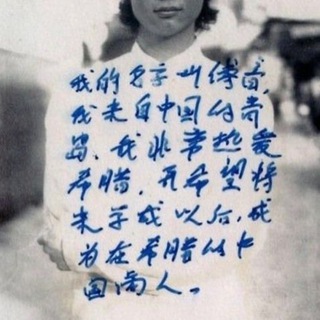 我的名字叫傅音,
我来自中国的青
岛、我非常热爱
希腊，并希望将
来学成以后，成
为在希腊的中
国商人。